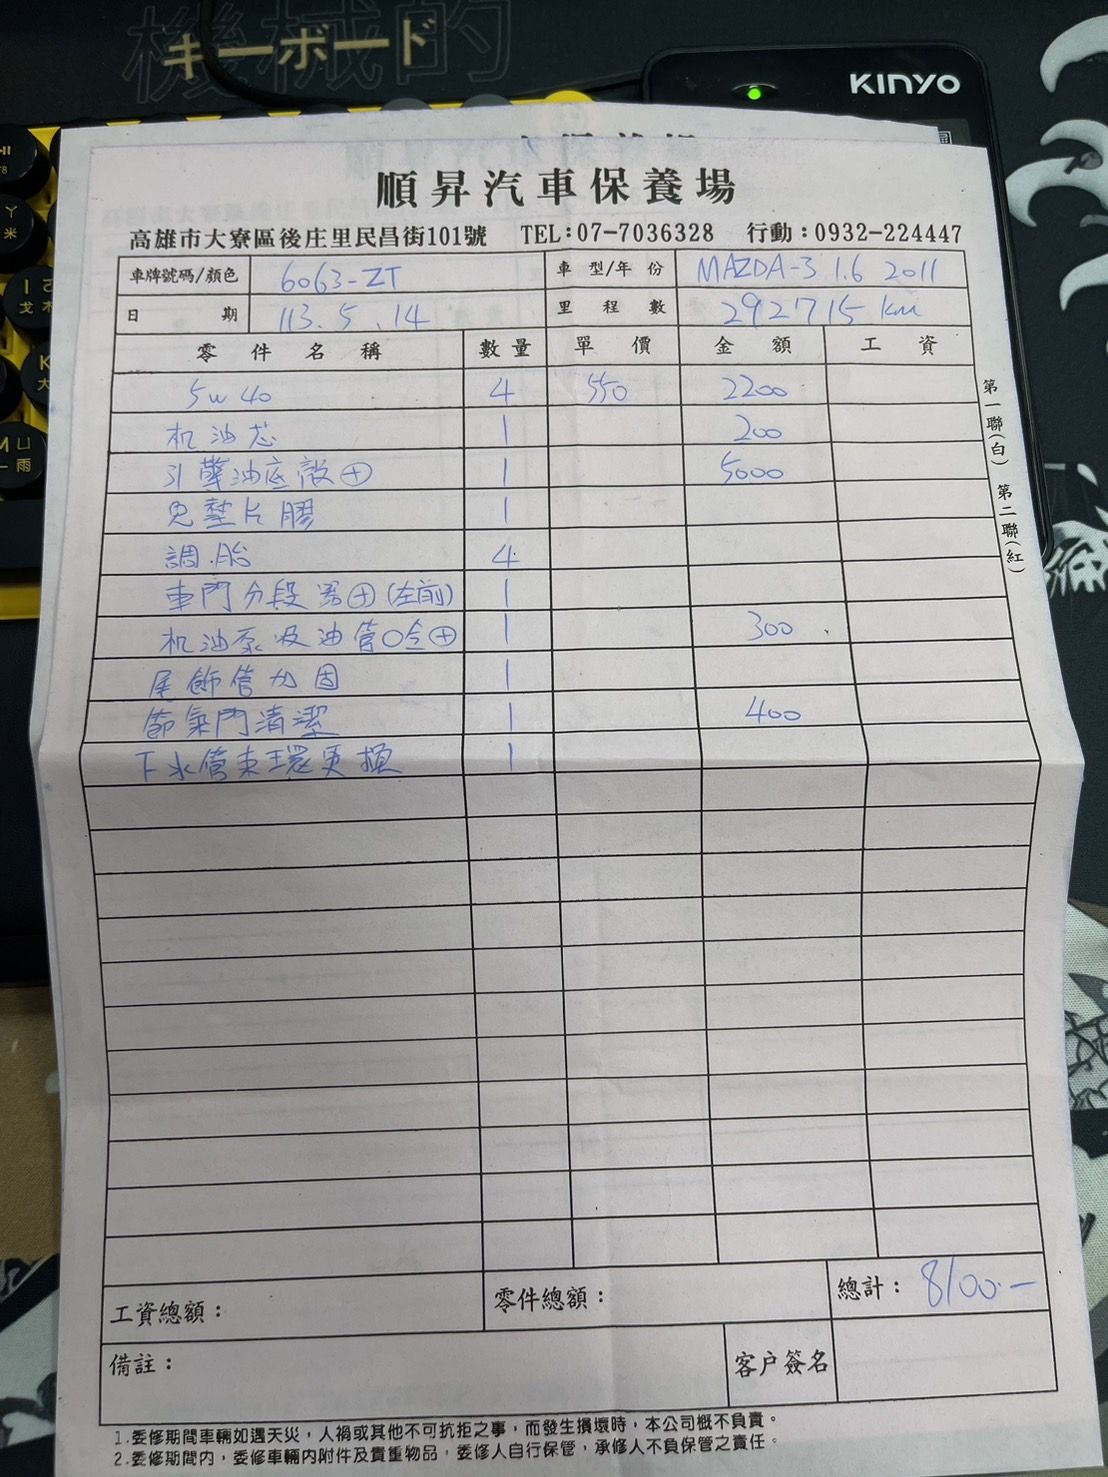 機械的
キーボード
KINYO
順昇汽車保養場
高雄市大寮區後庄里民昌街101號 TEL:07-7036328 行動:0932-224447
車牌號碼/顏色 6063-ZT 車型/年份 MAZDA-3 1.6 2011
日期 113.5.14 里程數 292715 km
零件名稱 數量 單價 金額 工資
5w40 4 550 2200
机油芯 1 200
引擎油底殼⊕ 1 5000
免墊片膠 1
調胎 4
車門分段器⊕(左前) 1
机油泵吸油管O令⊕ 1 300
尾飾管加固 1
節氣門清潔 1 400
下水管束環更換 1
第一聯(白) 第二聯(紅)
工資總額: 零件總額: 總計: 8100.-
備註: 客戶簽名
1.委修期間車輛如遇天災,人禍或其他不可抗拒之事,而發生損壞時,本公司概不負責。
2.委修期間內,委修車輛內附件及貴重物品,委修人自行保管,承修人不負保管之責任。